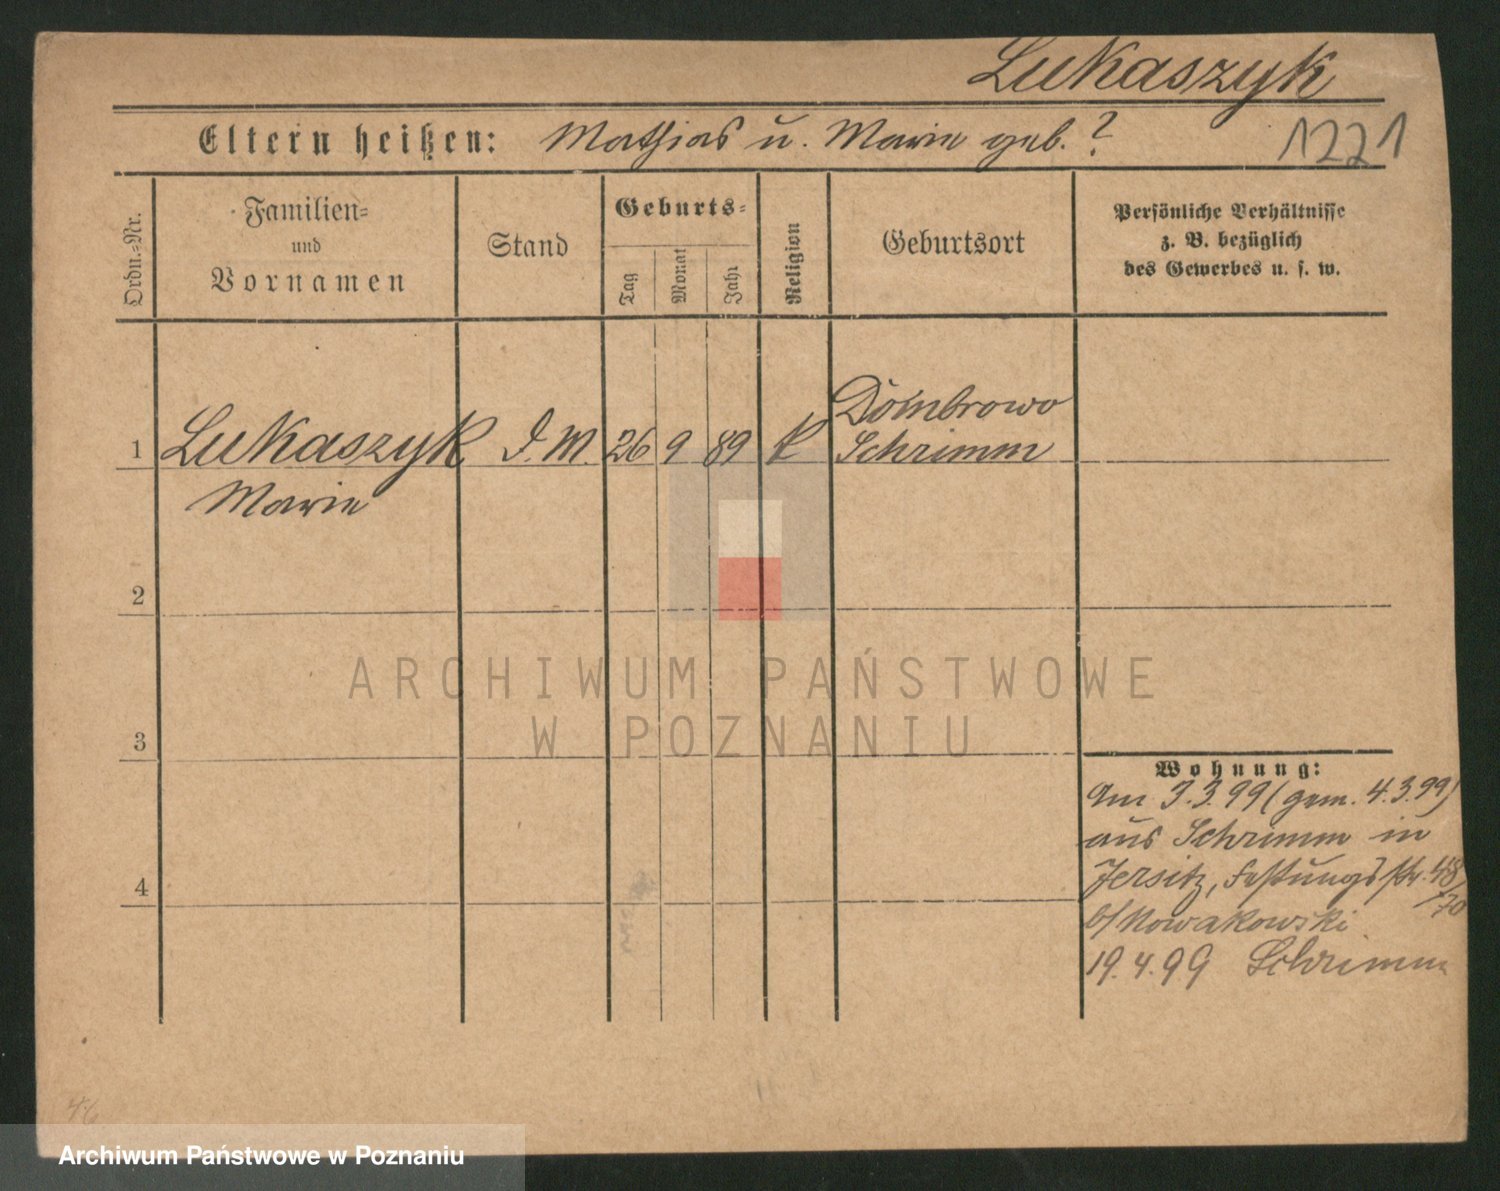 Lukaszyk
Eltern heißen: Mathias u. Marie geb. ?
1221
Ordn.-Nr.
Familien-
und
Vornamen
Stand
Geburts-
Tag
Monat
Jahr
Religion
Geburtsort
Persönliche Verhältnisse
z. B. bezüglich
des Gewerbes u. s. w.
Dombrowo
1 Lukaszyk D. M. 26 9 89 k Schrimm
Marie
2
3
4
ARCHIWUM PAŃSTWOWE
W POZNANIU
Wohnung:
Am 3.3.99 (gem. 4.3.99)
aus Schrimm in
Jersitz, Festungsstr. 48/70
b/ Nowakowski
19.4.99 Schrimm
Archiwum Państwowe w Poznaniu